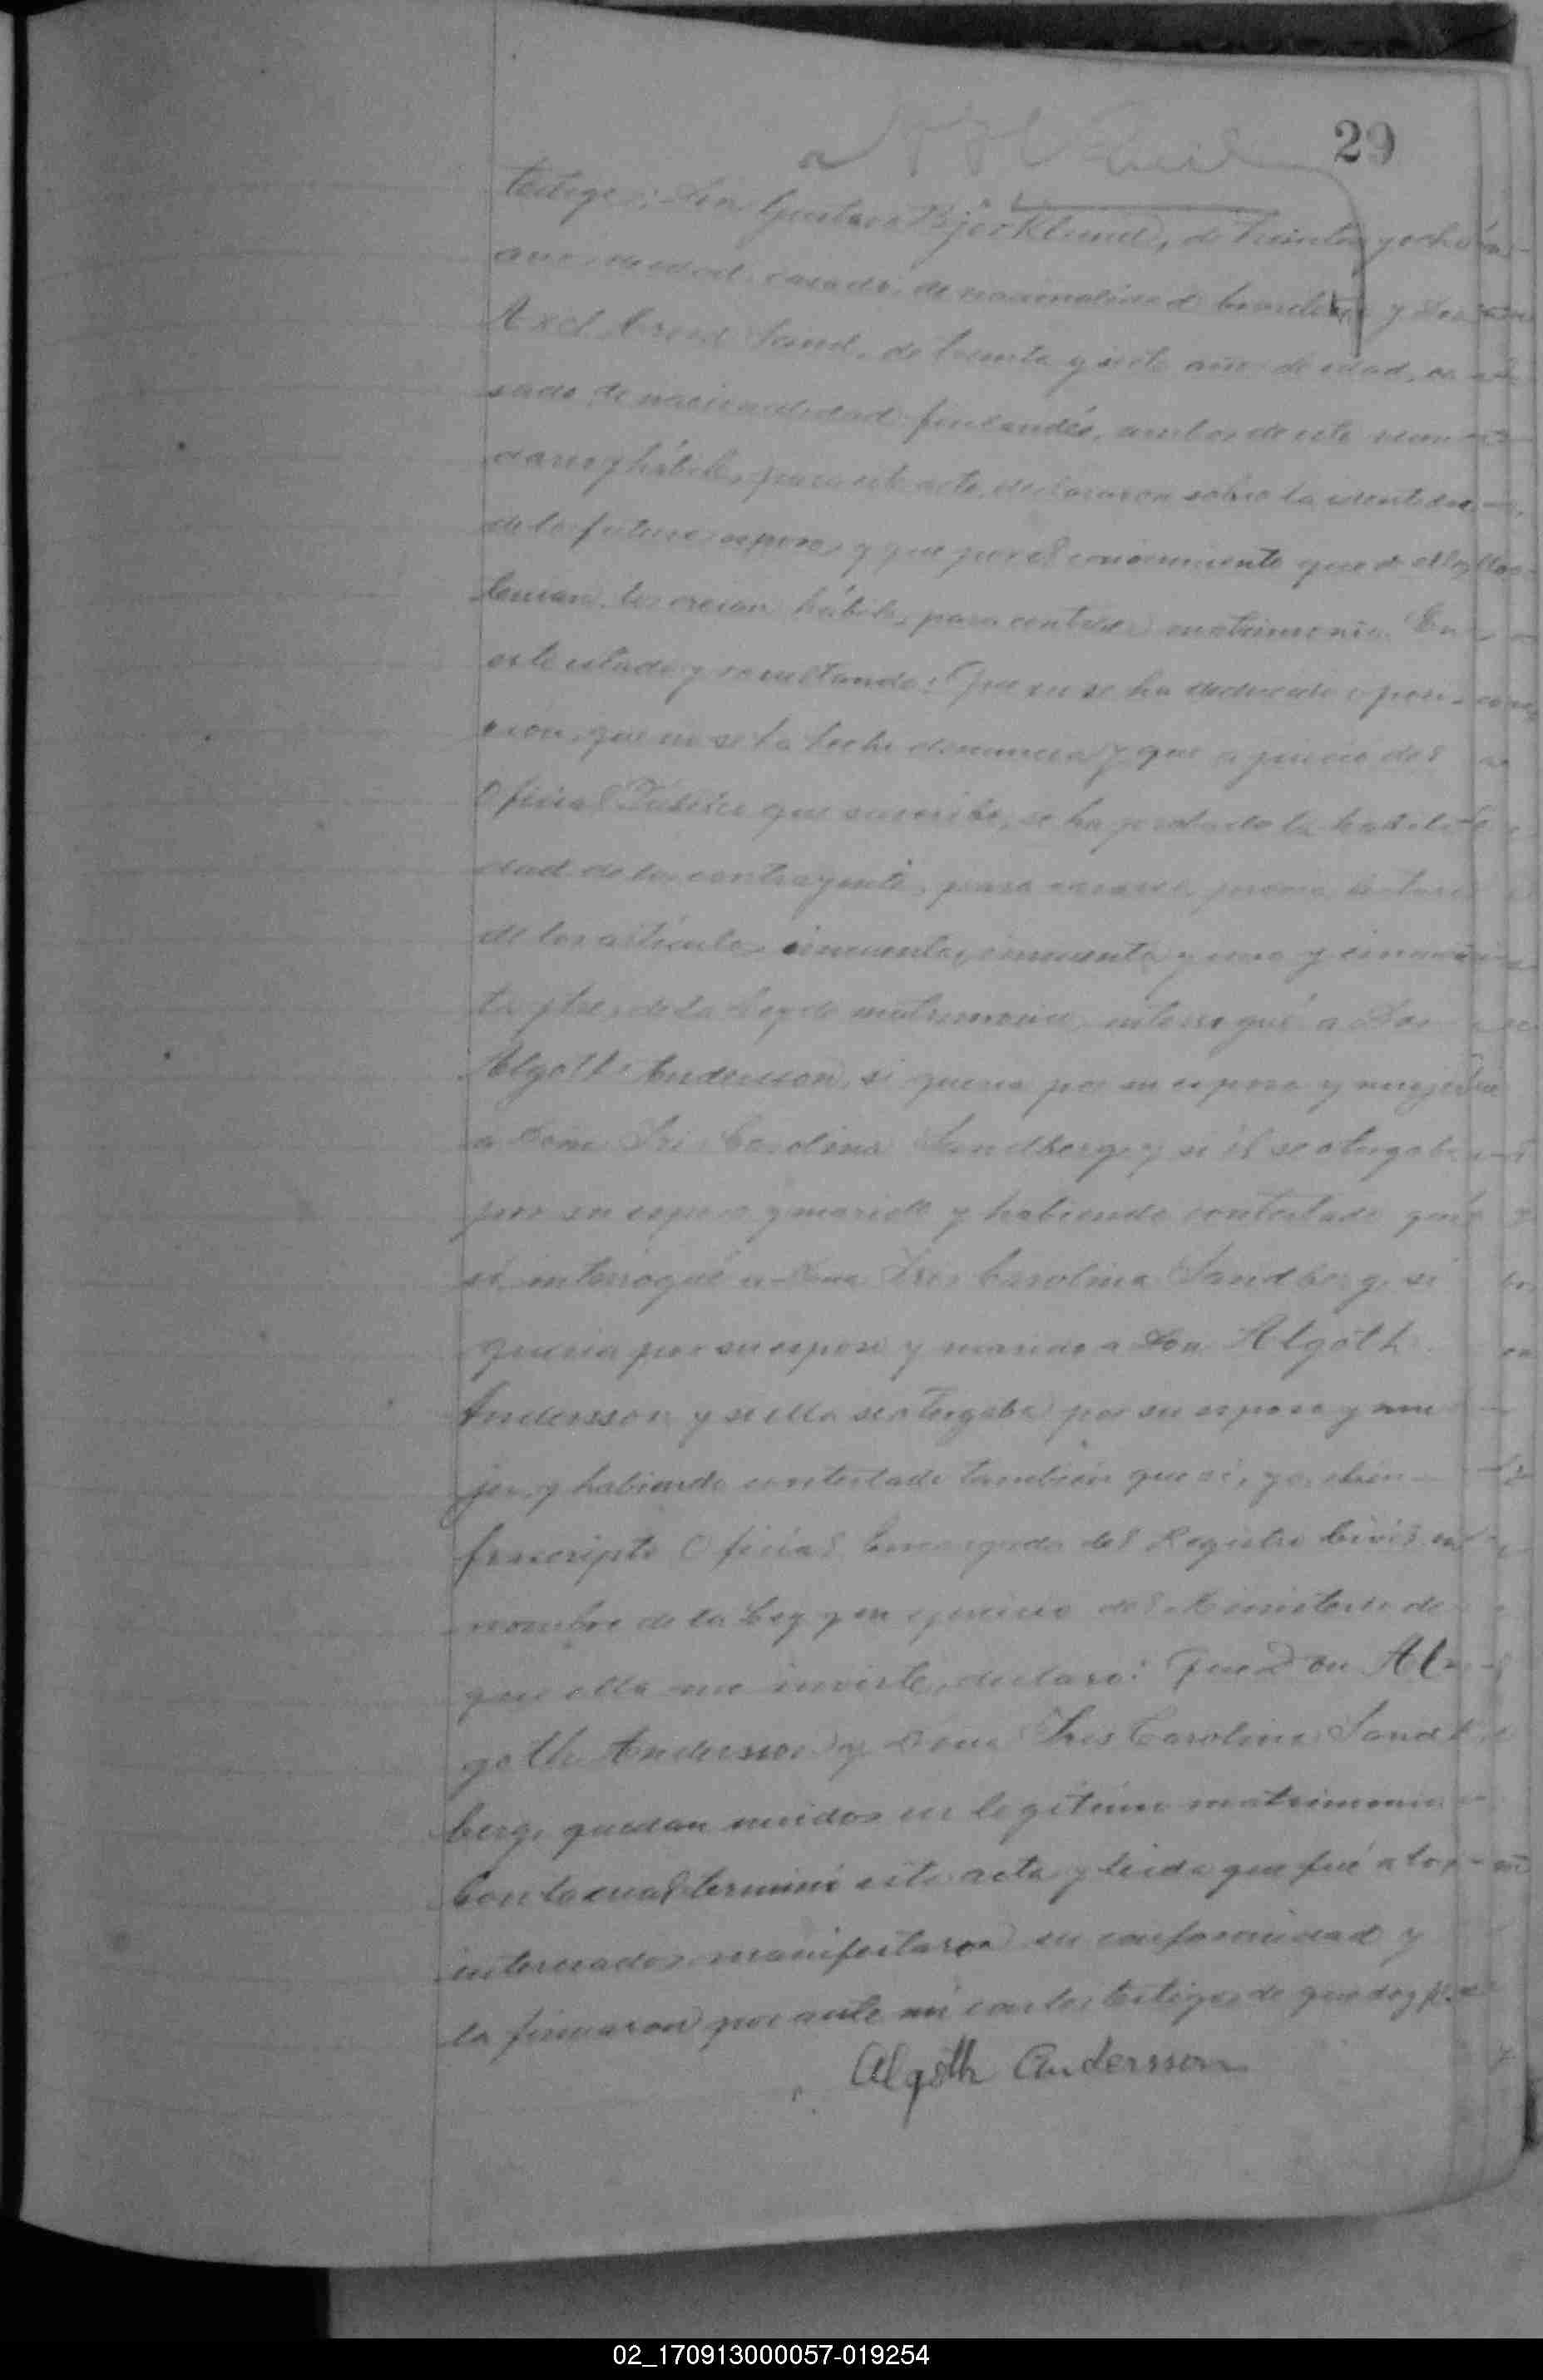 29
testigos: Don Gustavo Bjorklund, de treinta y ocho
años de edad, casado, de nacionalidad y Don
Axel Sand, de treinta y siete años de edad, ca
sado, de nacionalidad finlandés, ambos de este vecin
dario y hábiles para este acto, declararon sobre la identidad
de los futuros esposos y que por el conocimiento que de ellos
tenían, los creían hábiles para contraer matrimonio. En
este estado y resultando: Que no se ha deducido oposi-
ción, que no se ha hecho denuncia y que a juicio del
Oficial Público que suscribe, se ha probado la habili-
dad de los contrayentes para casarse, previa lectura
de los artículos cincuenta, cincuenta y uno y cincuen
ta y tres de la Ley de matrimonio, interrogué a Don
Algoth Andersson, si quería por su esposa y mujer
a Doña Iris Carolina Sandberg, y si él se otorgaba
por su esposo y marido y habiendo contestado que
sí, interrogué a Doña Iris Carolina Sandberg, si
quería por su esposo y marido a Don Algoth
Andersson y si ella se otorgaba por su esposa y mu
jer y habiendo contestado también que sí, yo, el in-
frascripto Oficial Encargado del Registro Civil en
nombre de la Ley y en ejercicio del Ministerio de
que ella me inviste, declaro: Que Don Al-
goth Andersson y Doña Iris Carolina Sand
berg, quedan unidos en legítimo matrimonio
Con lo cual terminó esta acta y leída que fué a los
interesados, manifestaron su conformidad y
la firmaron por ante mí con los testigos de que doy fé.
Algoth Andersson
02_170913000057-019254